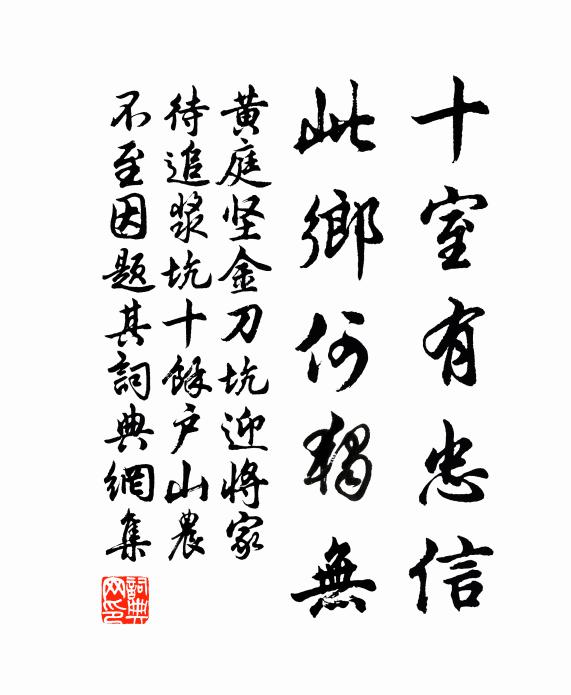 十室有忠信
此鄉何獨無
黄庭坚金刀坑迎將家
待追漿坑十餘户山農
不至因题其詞典網集
詞典網印